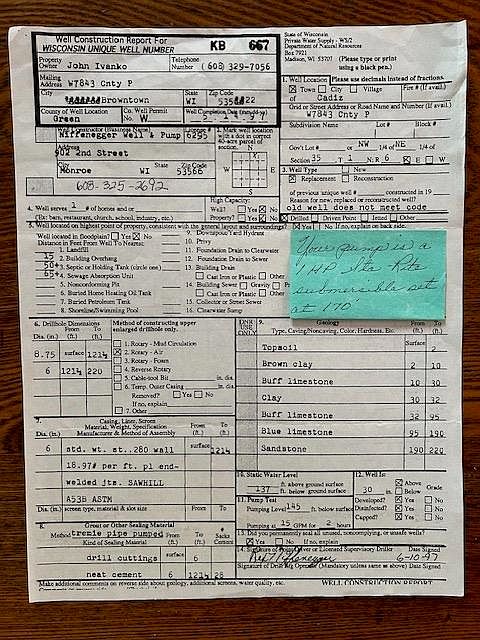 Well Construction Report For
WISCONSIN UNIQUE WELL NUMBER
KB 667
State of Wisconsin
Private Water Supply - WS/2
Department of Natural Resources
Box 7921
Madison, WI 53707
(Please type or print
using a black pen.)
Property Owner John Ivanko
Telephone Number (608) 329-7056
Mailing Address W7843 Cnty P
City Browntown
State WI
Zip Code 22
County of Well Location Green
Co. Well Permit No. W
Well Completion Date
1. Well Location
Please use decimals instead of fractions.
Town City Village
Fire # (If avail.)
of Cadiz
Grid or Street Address or Road Name and Number (If avail.)
W7843 Cnty P
Subdivision Name Lot # Block #
Gov't Lot # or NW 1/4 of NE 1/4 of
Section 35 T 1 N; R 6 E W
Well Constructor (Business Name)
Niffenegger Well & Pump
License # 6295
Address
902 2nd Street
City Monroe
State WI
Zip Code 53566
608-325-2692
2. Mark well location with a dot in correct 40-acre parcel of section.
N
W E
S
3. Well Type New
Replacement Reconstruction
of previous unique well # constructed in 19
Reason for new, replaced or reconstructed well?
old well does not meet code
Drilled Driven Point Jetted Other
4. Well serves 1 # of homes and or
(Ex: barn, restaurant, church, school, industry, etc.)
High Capacity:
Well? Yes No
Property? Yes No
5. Well located on highest point of property, consistent with the general layout and surroundings?
Yes No If no, explain on back side.
Well located in floodplain? Yes No
Distance in Feet From Well To Nearest:
1. Landfill
15 2. Building Overhang
50+ 3. Septic or Holding Tank (circle one)
65+ 4. Sewage Absorption Unit
5. Nonconforming Pit
6. Buried Home Heating Oil Tank
7. Buried Petroleum Tank
8. Shoreline/Swimming Pool
9. Downspout/Yard Hydrant
10. Privy
11. Foundation Drain to Clearwater
12. Foundation Drain to Sewer
13. Building Drain
Cast Iron or Plastic Other
14. Building Sewer Gravity
Cast Iron or Plastic Other
15. Collector or Street Sewer
16. Clearwater Sump
Your pump is a
1 HP Sta Rite
submersible set
at 170'
6. Drillhole Dimensions
Dia. (in.) From (ft.) To (ft.)
8.75 surface 121½
6 121½ 220
Method of constructing upper enlarged drillhole only.
1. Rotary - Mud Circulation
2. Rotary - Air
3. Rotary - Foam
4. Reverse Rotary
5. Cable-tool Bit in. dia.
6. Temp. Outer Casing in. dia.
Removed? Yes No
If no, explain
7. Other
9. Geology
Type, Caving/Noncaving, Color, Hardness, Etc.
From (ft.) To (ft.)
Topsoil Surface 2
Brown clay 2 10
Buff limestone 10 30
Clay 30 32
Buff limestone 32 95
Blue limestone 95 190
Sandstone 190 220
7. Casing, Liner, Screen
Material, Weight, Specification
Manufacturer & Method of Assembly
Dia. (in.) From (ft.) To (ft.)
6 std. wt. st. .280 wall surface 121½
18.97# per ft. pl end-
welded jts. SAWHILL
A53B ASTM
Dia. (in.) screen type, material & slot size From To
8. Grout or Other Sealing Material
Method tremie pipe pumped
Kind of Sealing Material From (ft.) To (ft.) # Sacks Cement
drill cuttings surface 6
neat cement 6 121½ 28
10. Static Water Level
ft. above ground surface
137 ft. below ground surface
11. Pump Test
Pumping Level 145 ft. below surface
Pumping at 15 GPM for 2 hours
12. Well Is:
30 in. Above Below Grade
Developed? Yes No
Disinfected? Yes No
Capped? Yes No
13. Did you permanently seal all unused, noncomplying, or unsafe wells?
Yes No If no, explain
14. Signature of Point Driver or Licensed Supervisory Driller Date Signed
6-10-97
Signature of Drill Rig Operator (Mandatory unless same as above) Date Signed
Make additional comments on reverse side about geology, additional screens, water quality, etc.
WELL CONSTRUCTION REPORT